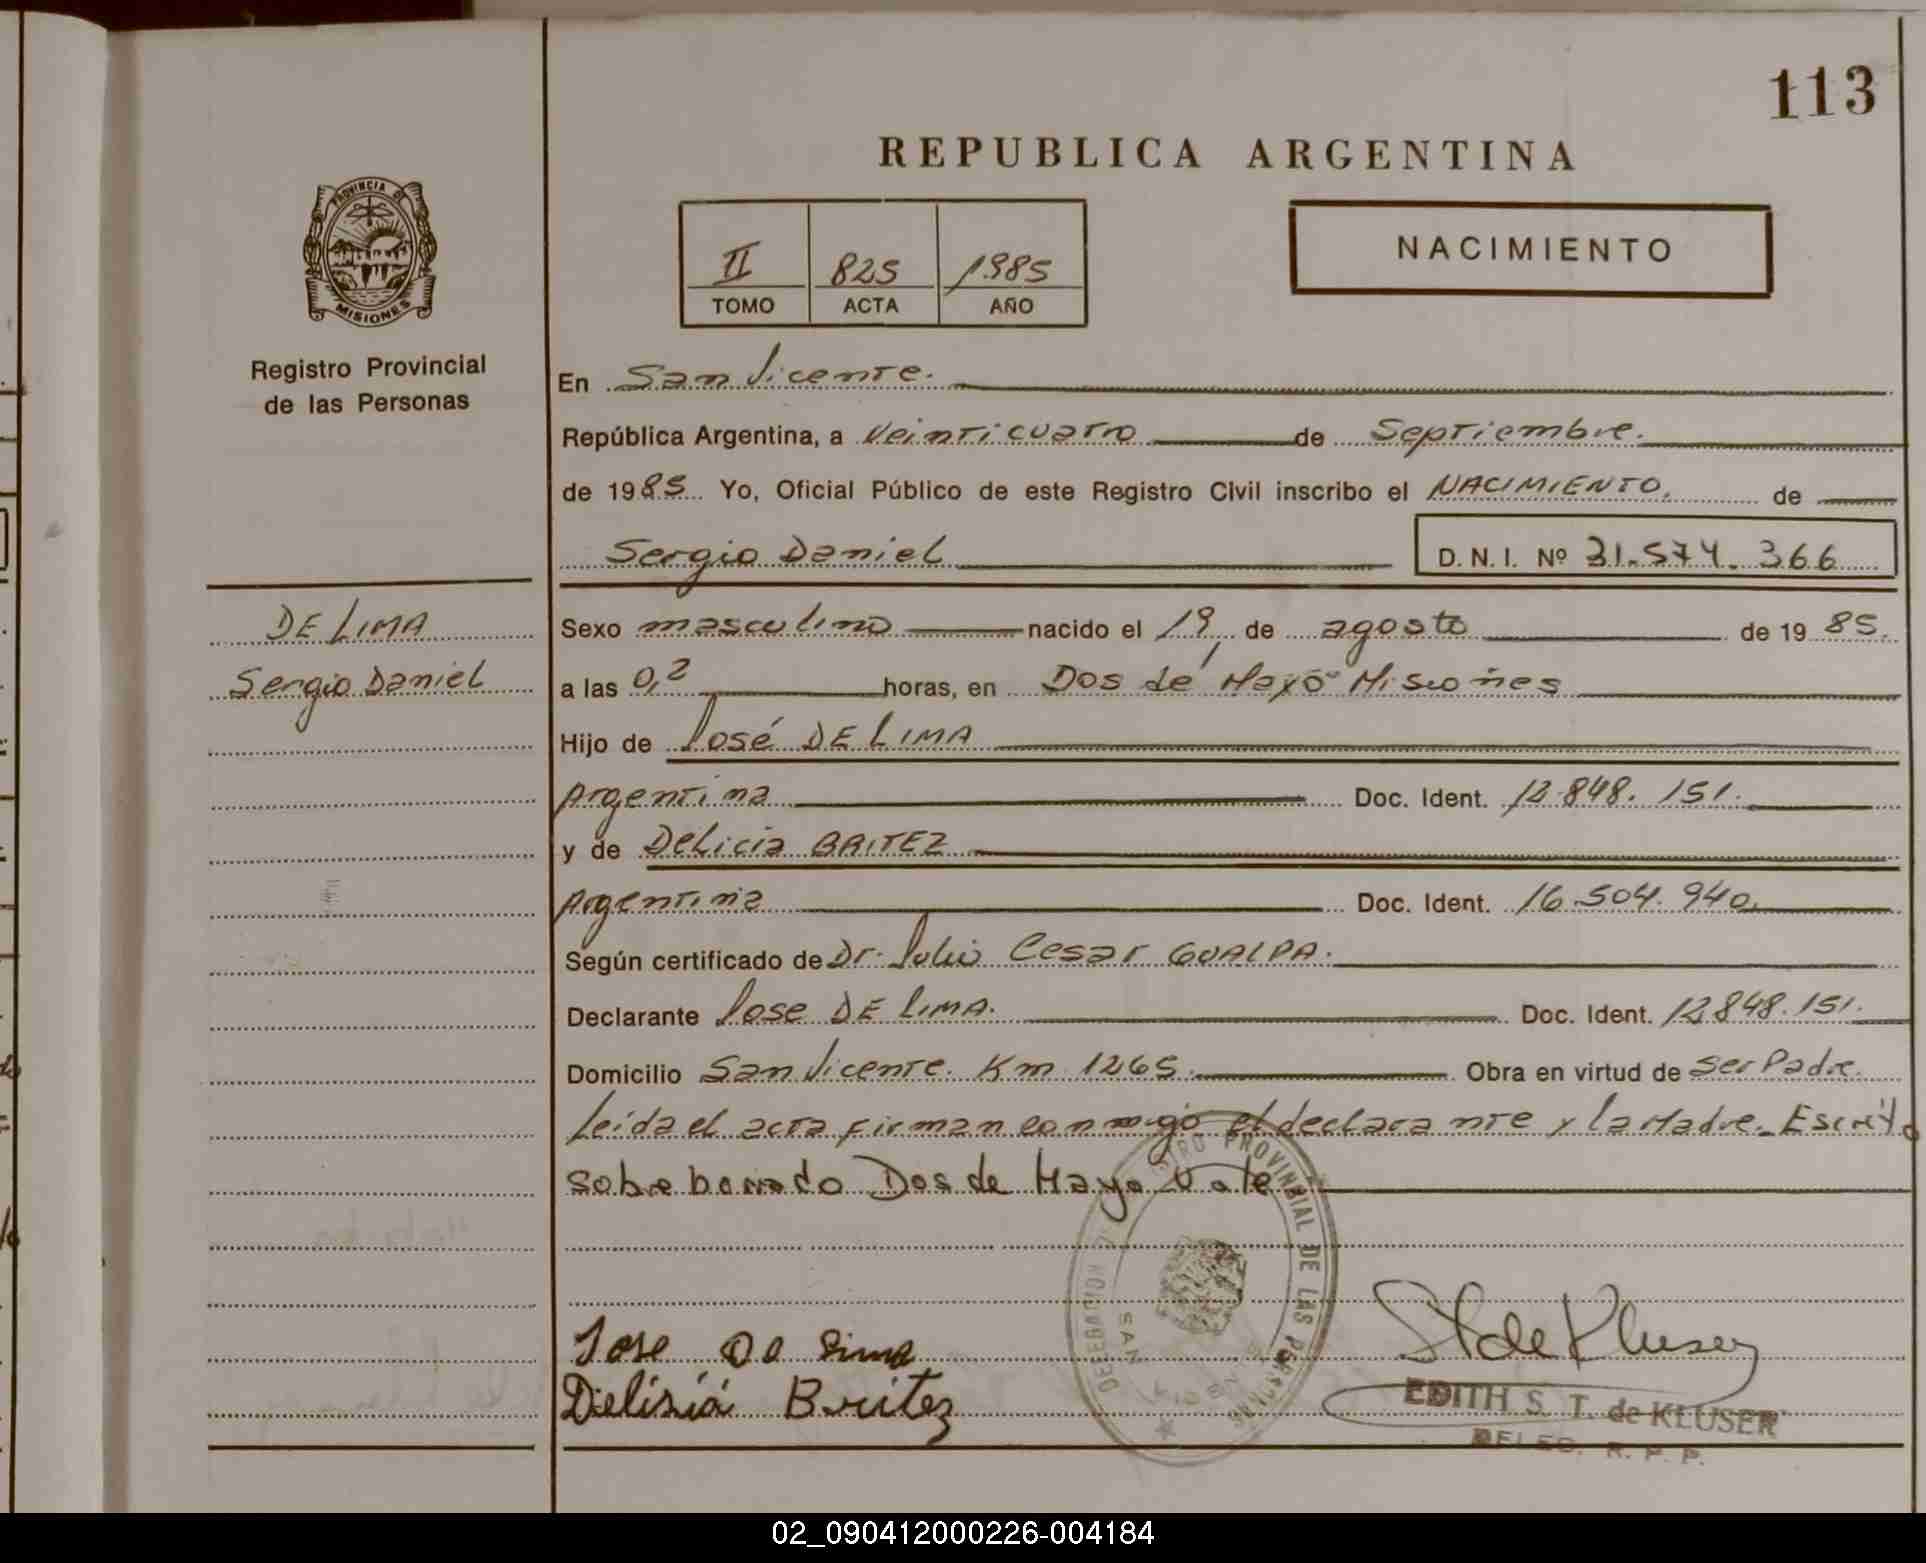 113
REPUBLICA ARGENTINA
PROVINCIA DE
MISIONES
Registro Provincial
de las Personas
II 825 1985
TOMO ACTA AÑO
NACIMIENTO
En San Vicente.
República Argentina, a Veinticuatro de Septiembre.
de 1985 Yo, Oficial Público de este Registro Civil inscribo el NACIMIENTO. de
Sergio Daniel D. N. I. Nº 31.574.366
DE LIMA
Sergio Daniel
Sexo masculino nacido el 19, de agosto de 1985.
a las 0,2 horas, en Dos de Mayo Misiones
Hijo de José DE LIMA
Argentina Doc. Ident. 12.848.151.
y de Delicia BRITEZ
Argentina Doc. Ident. 16.504.940.
Según certificado de Dr. Julio Cesar GUALPA.
Declarante Jose DE LIMA. Doc. Ident. 12.848.151.
Domicilio San Vicente. Km 1265. Obra en virtud de ser Padre.
Leida el acta firman conmigo el declarante y la Madre. Escrito
sobre borrado Dos de Mayo Vale
DELEGACION REGISTRO PROVINCIAL DE LAS PERSONAS
SAN VICENTE
Jose De Lima
Delisia Britez
St de Kluser
EDITH S. T. de KLUSER
DELEG. R. P. P.
02_090412000226-004184